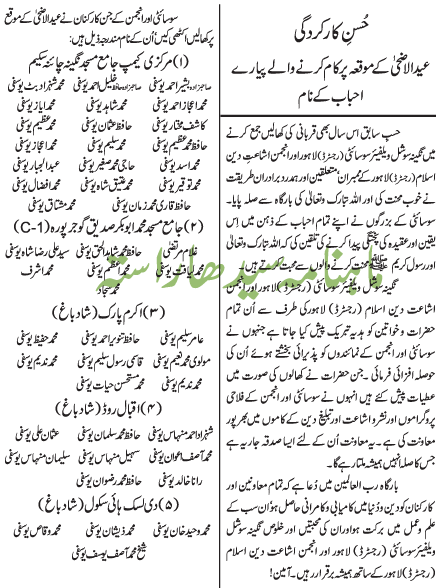 حُسنِ کارکردگی
عیدالاضحیٰ کے موقعہ پر کام کرنے والے پیارے
احباب کے نام
حسبِ سابق اس سال بھی قربانی کی کھالیں جمع کرنے
میں نگینہ سوشل ویلفیئر سوسائٹی (رجسٹرڈ) لاہور اور انجمن اشاعتِ دین
اسلام (رجسٹرڈ) لاہور کے ممبران، متعلقین اور ہمدرد برادران طریقت
نے خوب محنت کی اور اللہ تبارک وتعالیٰ کی بارگاہ سے صلہ پایا۔
سوسائٹی کے بزرگوں نے اپنے تمام احباب کے ذہن میں اِس
یقین اور عقیدہ کی پختگی پیدا کرنے کی تلقین کی کہ اللہ تبارک وتعالیٰ
اور رسول کریم ﷺ محنت کرنے والوں سے محبت کرتے ہیں۔
نگینہ سوشل ویلفیئر سوسائٹی (رجسٹرڈ) لاہور اور انجمن
اشاعت دین اسلام (رجسٹرڈ) لاہور کی طرف سے اُن تمام
حضرات وخواتین کو ہدیہ تبریک پیش کیا جاتا ہے جنہوں نے
سوسائٹی اور انجمن کے نمائندوں کو پذیرائی بخشتے ہوئے اُن کی
حوصلہ افزائی فرمائی۔ جن حضرات نے کھالوں کی صورت میں
عطیات پیش کئے ہیں اُنہوں نے سوسائٹی اور انجمن کے فلاحی
پروگراموں اور نشر و اشاعت اور تبلیغ دین کے کاموں میں بھرپور
معاونت کی ہے۔ یہ معاونت اُن کے لئے ایسا صدقہ جاریہ ہے
جس کا صلہ انہیں ہمیشہ ملتا رہے گا۔
بارگاہ رب العالمین میں دُعا ہے کہ تمام معاونین اور
کارکنان کو دین و دنیا میں کامیابی و کامرانی حاصل ہو اُن سب کے
علم وعمل میں برکت ہو اور ان کی محبتیں اور خلوص نگینہ سوشل
ویلفیئر سوسائٹی (رجسٹرڈ) لاہور اور انجمن اشاعت دین اسلام
(رجسٹرڈ) لاہور کے ساتھ ہمیشہ برقرار رہیں۔ آمین!
سوسائٹی اور انجمن کے جن کارکنان نے عیدالاضحیٰ کے موقع
پر کھالیں اکٹھی کیں اُن کے نام مندرجہ ذیل ہیں:
(۱) مرکزی کیمپ جامع مسجد نگینہ چائنہ سکیم
صاحبزادہ بشیر احمد یوسفی صاحبزادہ حافظ خلیل احمد یوسفی محمد شہزاد بٹ یوسفی
محمد اعجاز احمد یوسفی محمد شاہد یوسفی محمد ایاز یوسفی
کاشف مختار یوسفی حافظ عثمان یوسفی محمد عظیم یوسفی
حافظ محمد عظیم یوسفی محمد سلیم یوسفی محمد اعجاز یوسفی
محمد اسد یوسفی حاجی محمد صغیر یوسفی عبدالجبار یوسفی
محمد توقیر یوسفی محمد عتیق شاہ یوسفی محمد افضال یوسفی
حافظ قاری محمد زمان یوسفی محمد مشتاق یوسفی
(۲) جامع مسجد محمد ابوبکر صدیق گوجرپورہ (C-1)
غلام مرتضیٰ حافظ محمد شاہد الحق یوسفی سید علی رضا شاہ یوسفی
محمد لیاقت یوسفی محمد اعظم یوسفی محمد اشرف
محمد سجاد
(۳) اکرم پارک (شادباغ)
عامر سلیم یوسفی حافظ تنویر احمد یوسفی محمد حفیظ یوسفی
مولوی محمد نعیم یوسفی قاسمی رسول سلیم یوسفی محمد ندیم یوسفی
محمد ندیم یوسفی محمد مستحسن حیات یوسفی
(۴) اقبال روڈ (شادباغ)
شہزاد احمد منہاس یوسفی حافظ محمد سلمان یوسفی عثمان علی یوسفی
محمد آصف اعوان یوسفی سہیل منہاس یوسفی سلیمان منہاس یوسفی
رانا خالد یوسفی حافظ محمد رضوان یوسفی
(۵) دی لسک ہائی سکول (شادباغ)
محمد وحید خان یوسفی محمد ذیشان یوسفی محمد وقاص یوسفی
شیخ محمد آصف یوسف یوسفی
ماہنامہ سیدھا راستہ